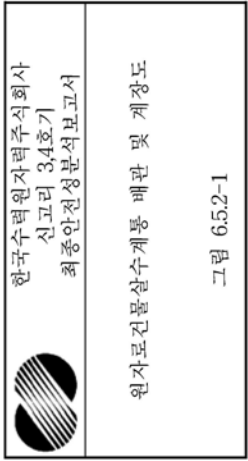 한국수력원자력주식회사
신고리 3,4호기
최종안전성분석보고서
원자로건물살수계통 배관 및 계장도
그림 6.5.2-1